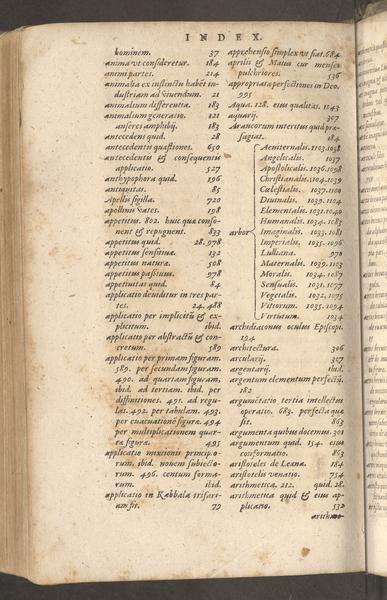 INDEX.
hominem. 37
anima vt consideretur. 184
animi partes. 214
animalia ex instinctu habēt in-
dustriam ad viuendum. 21
animalium differentia. 183
animalium generatio. 121
anseres amphibij. 183
antecedens quid. 28
antecedentis quæstiones. 650
antecedentis & consequentis
applicatio. 527
anthypophora quid. 196
antiquitas. 85
Apellis sigilla. 720
apollinis vates. 198
appetitus. 802. huic quæ conso-
nent & repugnent. 833
appetitus quid. 28.978
appetitus sensitiuæ. 132
appetitus natura. 508
appetitus passiuus. 978
appetiuitas quid. 84
applicatio deuiditur in tres par-
tes. 24.488
applicatio per implicitū & ex-
plicitum. ibid.
applicatio per abstractū & con-
cretum. 589
applicatio per primam figuram.
589. per secundam figuram.
490. ad quartam figuram,
ibid. ad tertiam. ibid. per
diffinitiones. 491. ad regu-
las. 492. per tabulam. 493.
per euacuationē figuræ. 494
per multiplicationem quar-
tæ figuræ. 495
applicatio mixtionis principio-
rum. ibid. nouem subiecto-
rum. 496. centum forma-
rum. ibid.
applicatio in Kabbala trifari-
am fit. 79
apprehensio simplex vt fiat. 684
aprilis & Maius cur menses
pulchriores. 536
appropriatæ perfectiones in Deo.
995
Aqua. 128. eius qualitas. 1043
aquarij. 307
Arancorum interitus quid præ-
sagiat. 184
arbor
Aeuiternalis. 1103.1038
Angelicalis. 1037
Apostolicalis. 1036.1098
Christianalis. 1104.1039
Cœlestialis. 1037.1100
Diuinalis. 1039.1104
Elementalis. 1031.1040
Humanalis. 1034.1087
Imaginalis. 1033.1081
Imperialis. 1035.1096
Lulliana. 970
Maternalis. 1039.1103
Moralis. 1034.1087
Sensualis. 1031.1077
Vegetalis. 1032.1075
Vitiorum. 1035.1094
Virtutum. 1034
archidiaconus oculus Episcopi.
194
architectura. 306
arcularij. 307
argentarij. ibid.
argentum elementum perfectū.
182
argumētatio tertia intellectus
operatio. 683. perfecta quæ
sit. 863
argumenta quibus docemur. 301
argumentum quid. 154. eius
confirmatio. 863
aristoteles de Leana. 184
aristotelis venatio. 754
arithmetica. 212. quid. 28.
arithmetica quid & eius ap-
plicatio. 532
arithme-